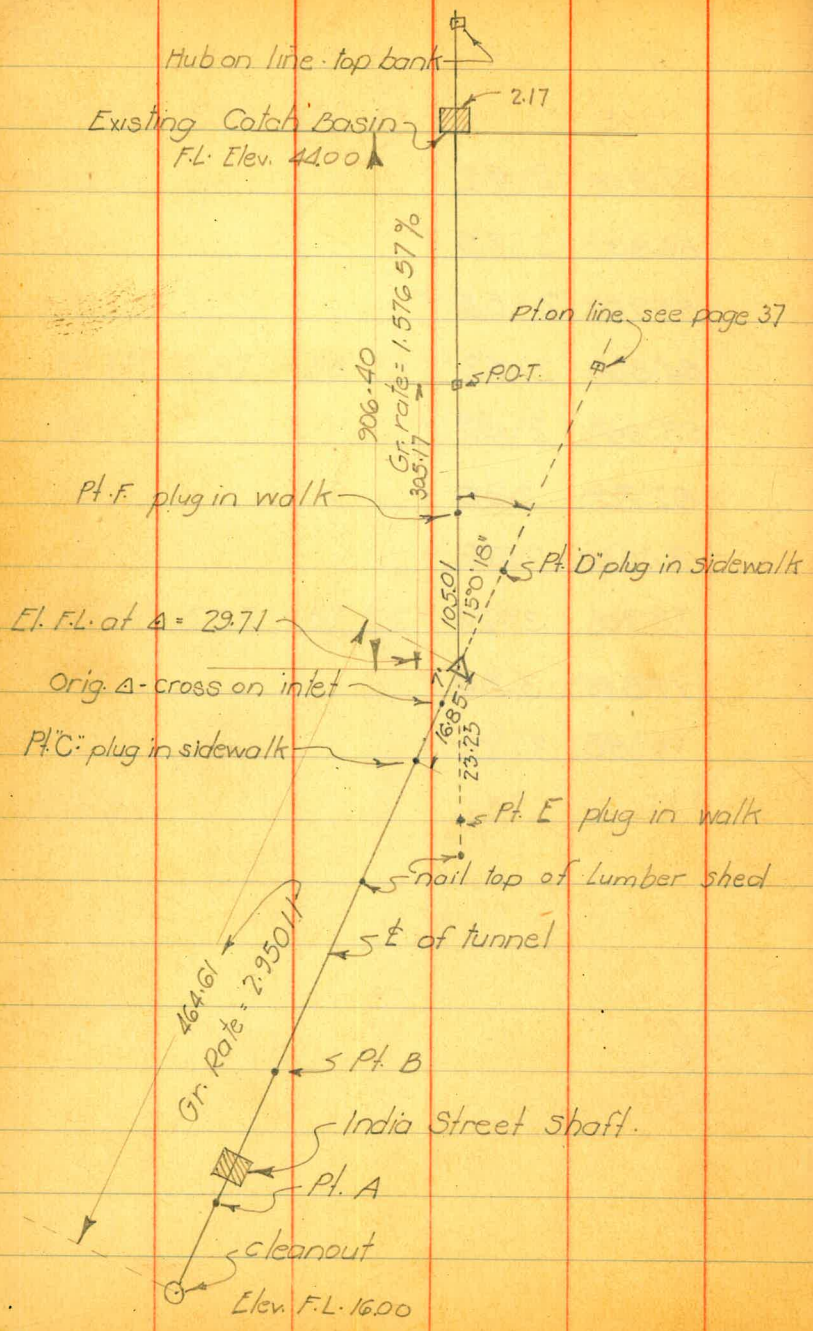 Hub on line - top bank
2.17
Existing Catch Basin
F.L. Elev. 44.00
Pt. on line see page 37
906.40
Gr. rate = 1.57657%
305.17
P.O.T.
Pt. F. plug in walk
105.01
15°0'18"
Pt. "D" plug in sidewalk
El. F.L. at Δ = 29.71
Orig. Δ - cross on inlet
7.
16.85
23.23
Pt. "C" plug in sidewalk
Pt. E plug in walk
nail top of lumber shed
℄ of tunnel
464.61
Gr. Rate = 2.9501
Pt. B
India Street shaft.
Pt. A
cleanout
Elev. F.L. 16.00